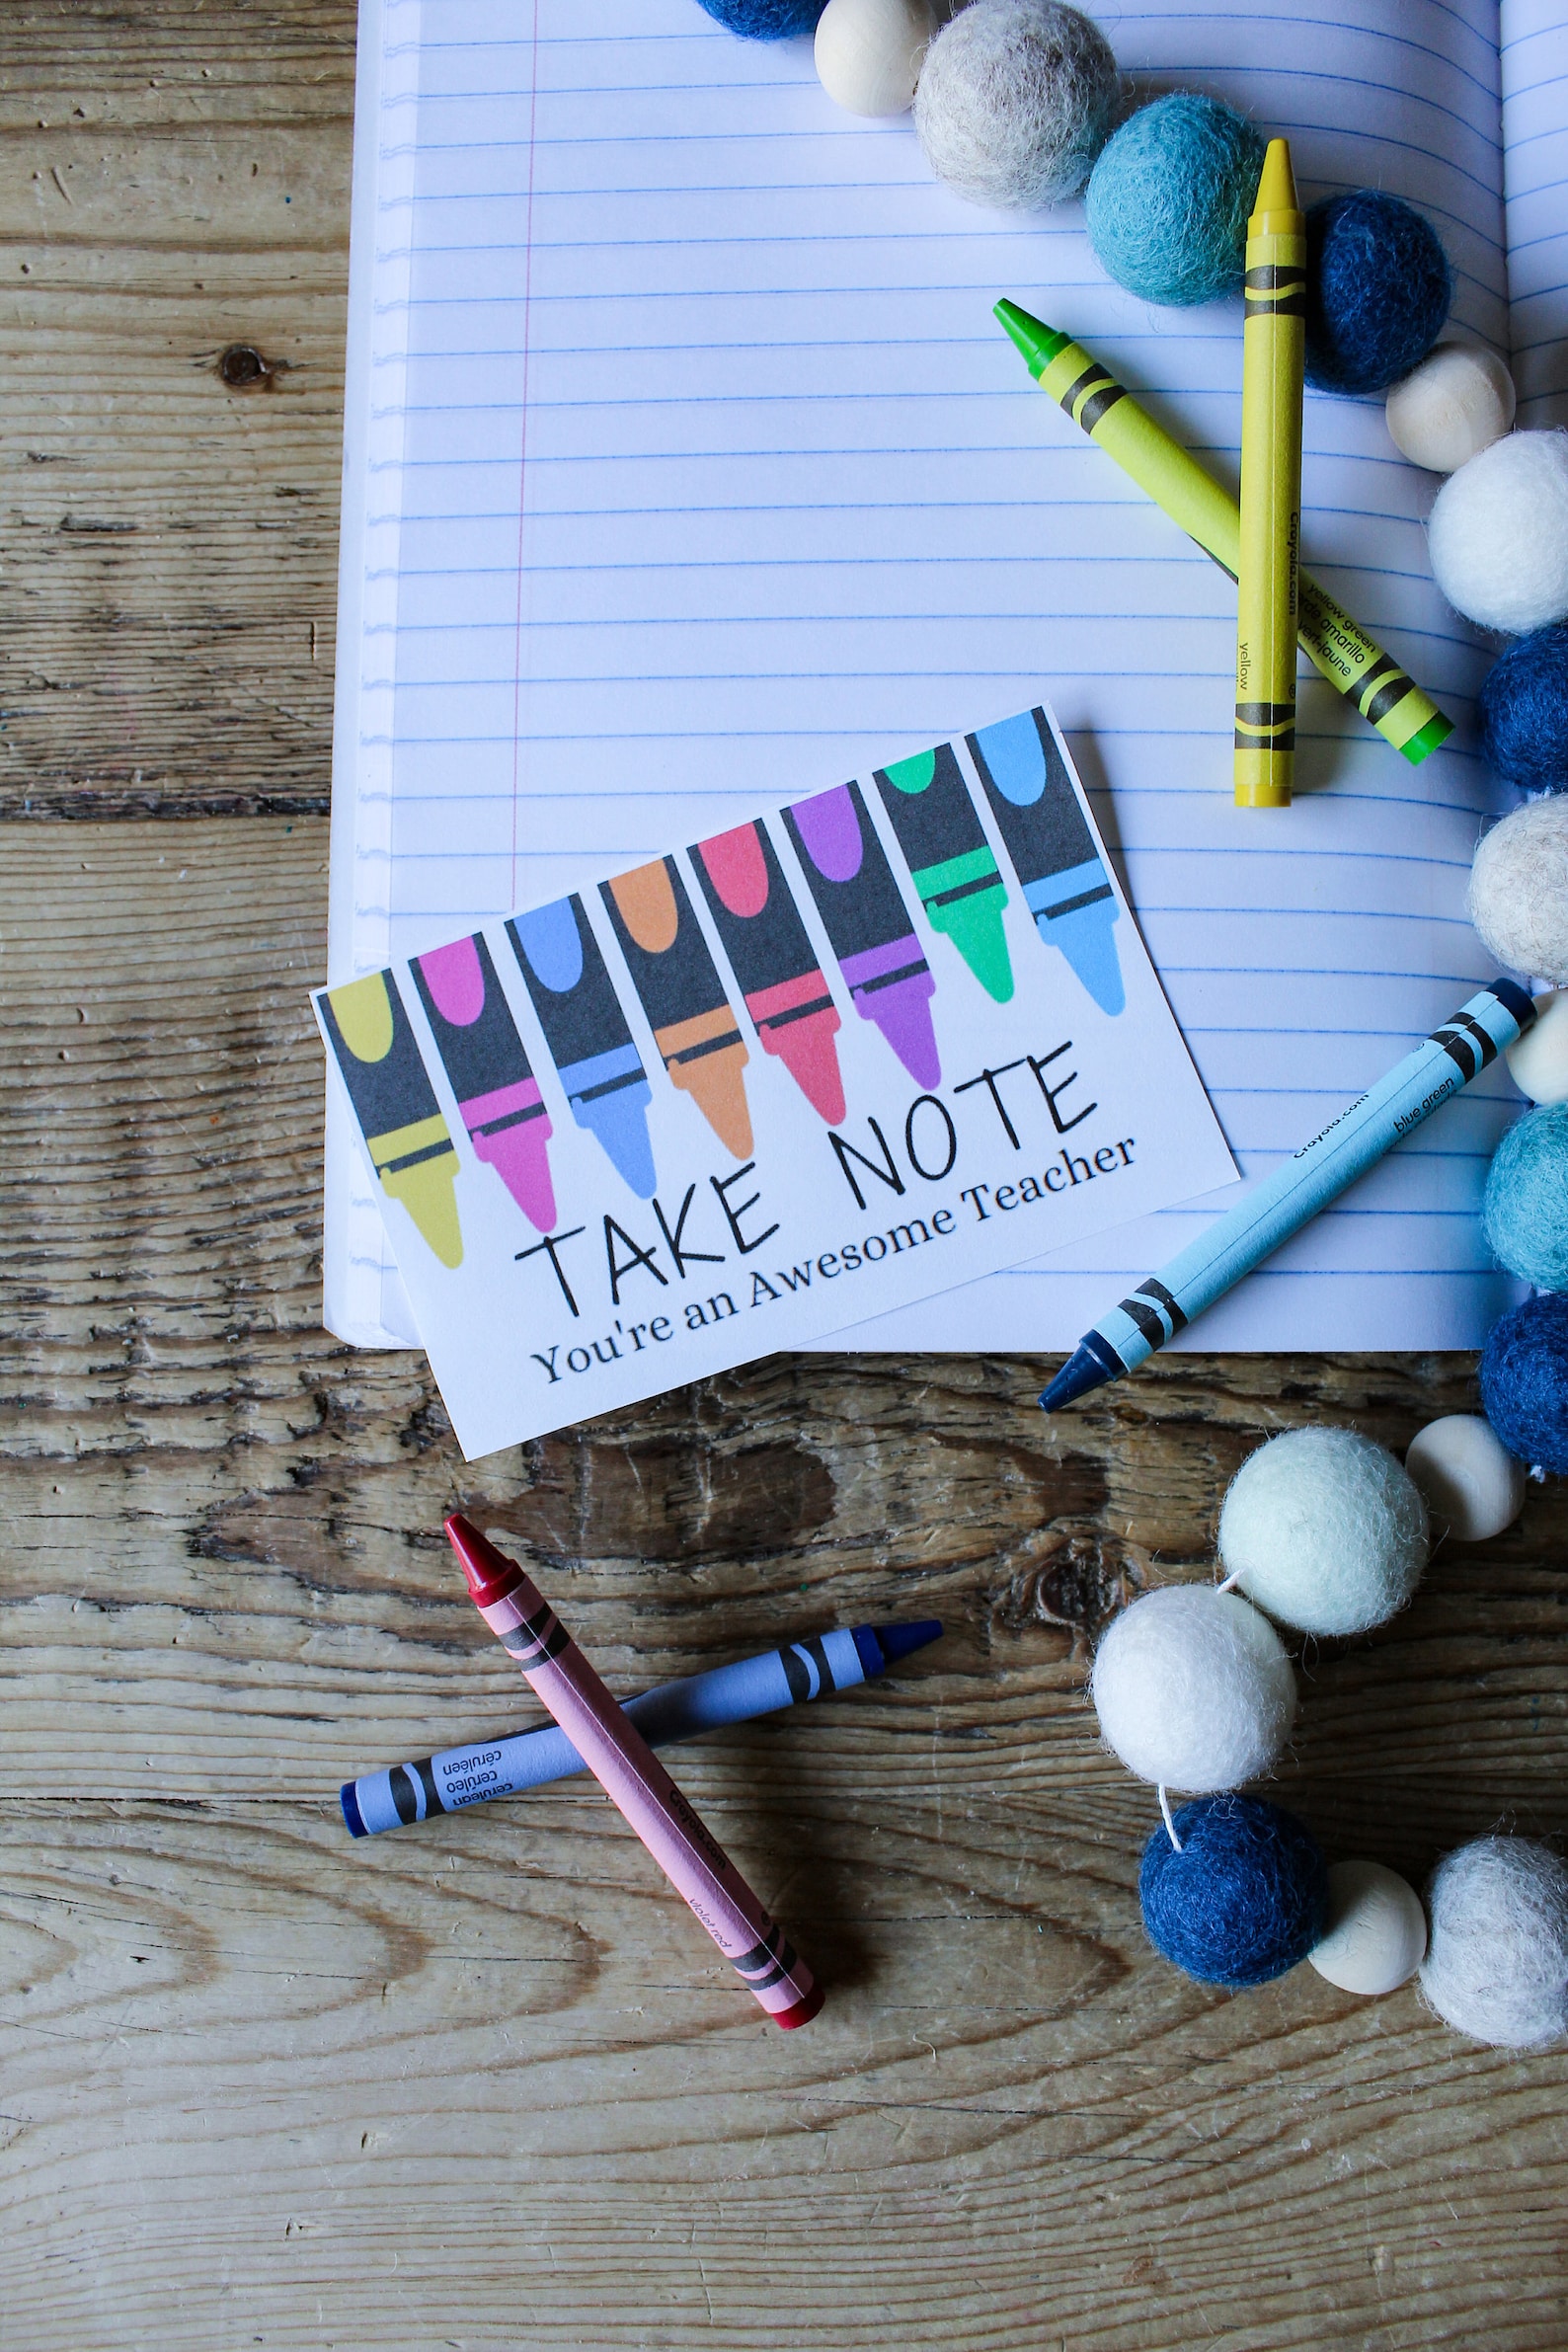 Crayola.com
yellow
yellow green
verde amarillo
vert-jaune
TAKE NOTE
You're an Awesome Teacher
Crayola.com
blue green
cerulean
cerúleo
céruléen
Crayola.com
violet red